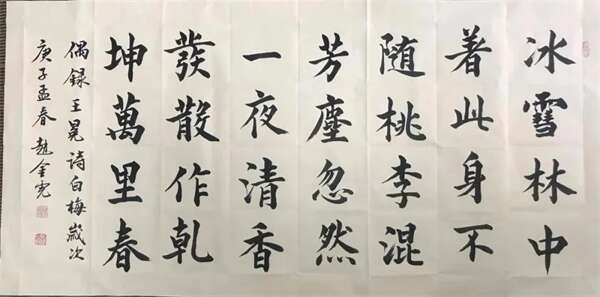 冰雪林中
著此身不
随桃李混
芳塵忽然
一夜清香
發散作乾
坤萬里春
偶録王冕诗白梅嵗次
庚子孟春趙金光